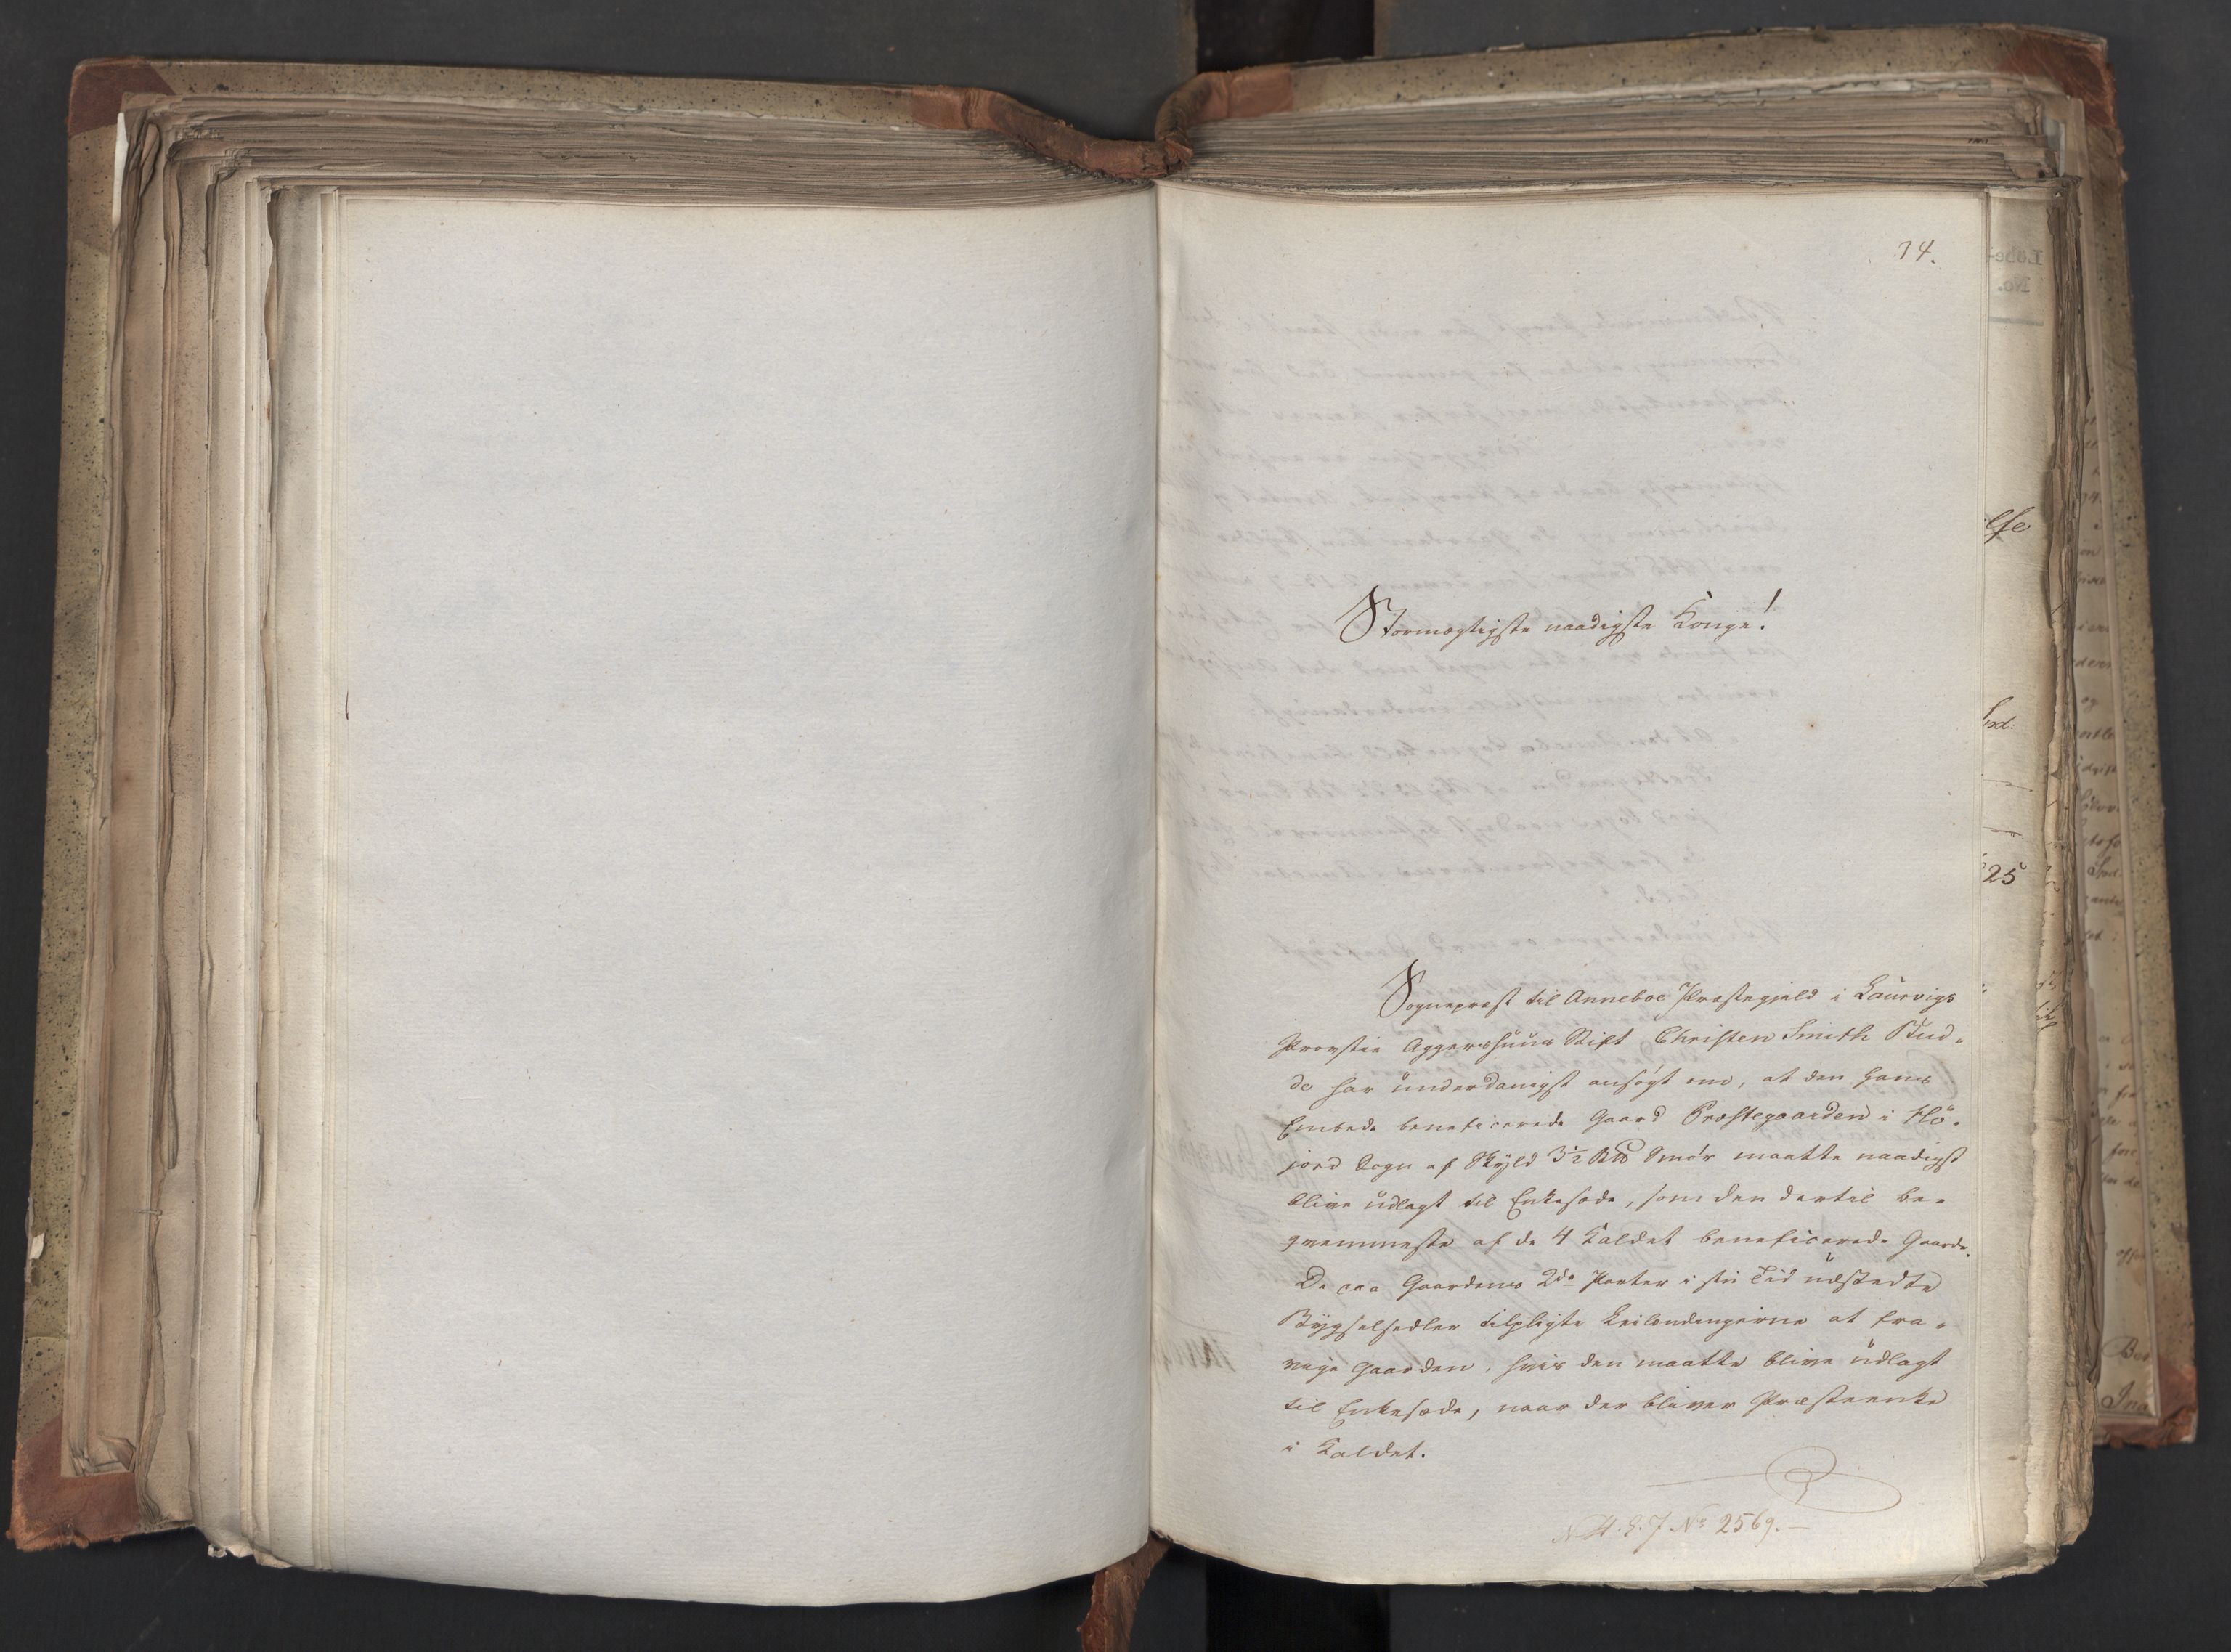 74.
Stormægtigste naadigste Konge!
Sognepræst til Anneboe Præstegjeld i Laurvigs
Provstie Aggershuus Stift Christen Smith Bud-
de har underdanigst ansøgt om, at den hans
Embede beneficerede Gaard Præstegaarden i Hö-
jord Sogn af Skyld 3½ B℔ Smör maatte naadigst
blive udlagt til Enkesæde, som den dertil be-
qvemmeste af de 4 Kaldet beneficerede Gaarde.
De paa Gaardens 2de Parter i sin Tid udstedte
Bygselsedler tilpligte Leilendingerne at fra-
vige Gaarden, hvis den maatte blive udlagt
til Enkesæde, naar der bliver Præsteenke
i Kaldet.
No 2569.
lse
Sod.
25